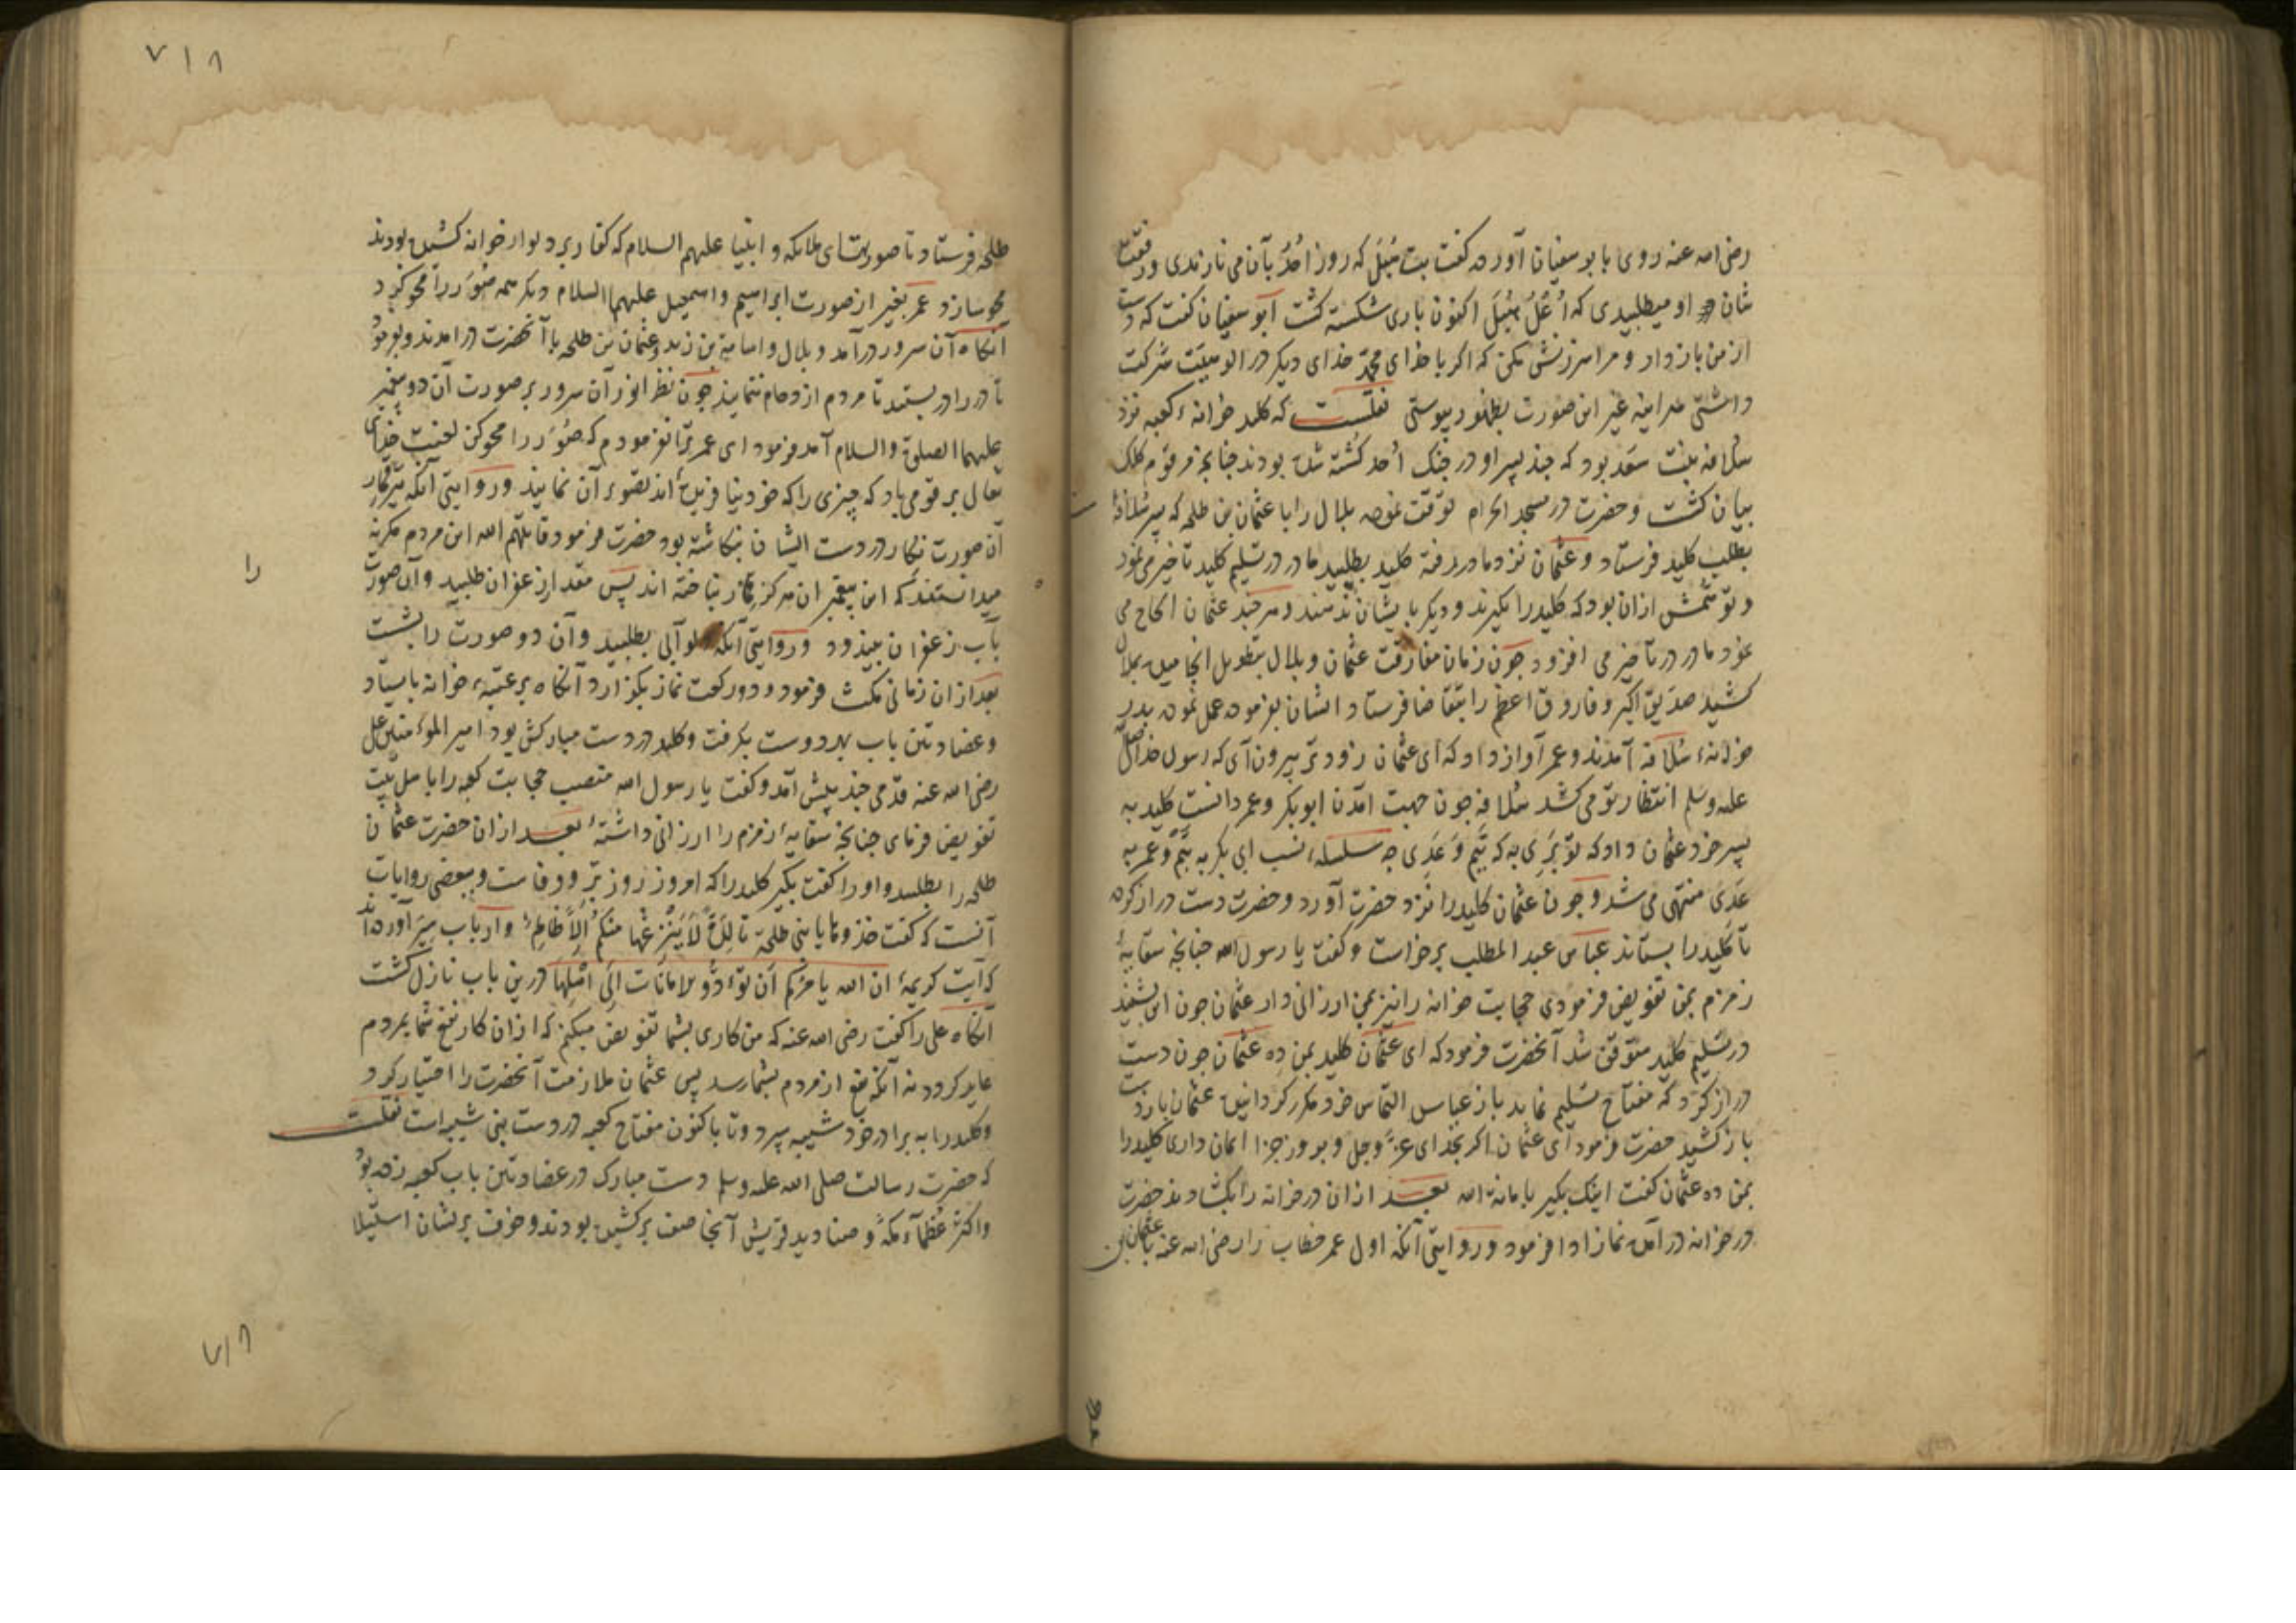 رضی الله عنه روی بابو سفیان آورده گفت بت هُبَل که روز اُحُد بآن می نازیدی و رفعت
شان او میطلبیدی که اُعْلُ هُبَل اکنون باری شکسته گشت ابو سفیان گفت که دست
از من باز دار و مرا سرزنش مکن که اگر با خدای محمد خدای دیگر در الوهیت شرکت
داشتی هر اینه غیر این صورت بظهور پیوستی نقلست که کلید خزانهٔ کعبه نزد
سُلافه بنت سَعد بود که چند پسر او در جنگ اُحد کشته شده بودند چنانچه مرقوم کلک
بیان گشت و حضرت در مسجد الحرام توقف نموده بلال را با عثمان بن طلحه که پسر سُلافهٔ
بطلب کلید فرستاد و عثمان نزد مادر رفته کلید بطلبید مادر در تسلیم کلید تاخیر می نمود
و توهّمش ازان بود که کلید را بگیرند و دیگر بایشان ندهند و هر چند عثمان الحاح می
نمود مادر در تاخیر می افزود چون زمان مفارقت عثمان و بلال بتطویل انجامید بملال
کشید صدیق اکبر و فاروق اعظم را بتقاضا فرستاد ایشان بفرموده عمل نموده بدرِ
خانهٔ سُلافه آمدند و عمر آواز داد که ای عثمان زودتر بیرون آی که رسول خدا صلی الله
علیه وسلم انتظار تو می کشد سُلافه چون جهت امدن ابوبکر و عمر دانست کلید به
پسر خود عثمان داد که تو بَری به که تَیم وَ عَدِی چه سلسلهٔ نسب ابی بکر به تَیم و عمر به
عَدِی منتهی می شد و چون عثمان کلید را نزد حضرت آورد و حضرت دست دراز کرده
تا کلید را بستاند عباس عبد المطلب برخاست و گفت یا رسول الله چنانچه سقایهٔ
زمزم بمن تفویض فرمودی حجابت خانه را نیز بمن ارزانی دار عثمان چون این بشنید
در تسلیم کلید متوقف شد آنحضرت فرمود که ای عثمان کلید بمن ده عثمان چون دست
دراز کرد که مفتاح تسلیم نماید باز عباس التماس خود مکرر گردانید عثمان باز دست
باز کشید حضرت فرمود ای عثمان اکر بخدای عزّ وجل و بروز جزا ایمان داری کلید را
بمن ده عثمان گفت اینک بگیر بامانة الله بعد ازان در خانه را بکشادند حضرت
در خانه در آمده نماز ادا فرمود و روایتی آنکه اول عمر خطاب را رضی الله عنه با عثمان بن
طلحه فرستاد تا صورتهای ملایکه و انبیا علیهم السلام که کفار بر دیوار خانه کشیده بودند
محو سازد عمر بغیر از صورت ابراهیم و اسمعیل علیهما السلام دیگر همه صُوَر را محو کرد
آنکاه آن سرور در آمد و بلال و اسامة بن زید و عثمان بن طلحه با آنحضرت در امدند و بفرمود
تا در را در بستند تا مردم ازدحام ننمایند چون نظر انور آن سرور بر صورت آن دو پیغمبر
علیهما الصلوة والسلام آمد فرمود ای عمر ترا نفرمودم که صُوَر را محو کن لعنت خدای
تعالی بر قومی باد که چیزی را که خود نیافریده اند تصویر آن نمایند و روایتی آنکه تیر قمار
آن صورت نگار در دست ایشان بنکاشته بود حضرت فرمود قاتلهم الله این مردم مکرنه
میدانستند که این پیغمبران هرکز قمار نباخته اند پس مقداری زعفران طلبید و آن صورت
بآب زعفران بیندود و روایتی آنکه دلو آبی بطلبید وآن دو صورت را بشست
بعد ازان زمانی مکث فرمود و دو رکعت نماز بکزارد آنکاه بر عتبهٔ خانه بایستاد
وعضادتین باب بهر دو دست بگرفت و کلید در دست مبارکش بود امیر المؤمنین علی
رضی الله عنه قدمی چند پیش آمد و گفت یا رسول الله منصب حجابت کعبه را با اهل بیت
تفویض فرمای چنانچه سقایهٔ زمزم را ارزانی داشتهٔ بعد ازان حضرت عثمان
طلحه را بطلبید و او را گفت بگیر کلید را که امروز روز برّ و وفاست و بعضی روایات
آنست که گفت خذوها یا بنی طلحة تالِدةً لا ینزعها منکم الّا ظالِمٌ و ارباب سِیَر آورده اند
که آیت کریمهٔ ان الله یامرکم ان تؤدّوا الامانات الی اهلِها درین باب نازل گشت
آنکاه علی را گفت رضی الله عنه که من کاری بشما تفویض میکنم که ازان کار نفع شما بمردم
عاید گردد نه آنکه نفع از مردم بشما رسد پس عثمان ملازمت آنحضرت را اختیار کرد
و کلید را به برادر خود شیبه سپرد و تا باکنون مفتاح کعبه در دست بنی شیبه است نقلست
که حضرت رسالت صلی الله علیه وسلم دست مبارک در عضادتین باب کعبه زده بود
واکثر عظمآء مکه و صنادید قریش آنجا صف بر کشیده بودند و خوف بریشان استیلا
را
۷۱۸
۷۱۸